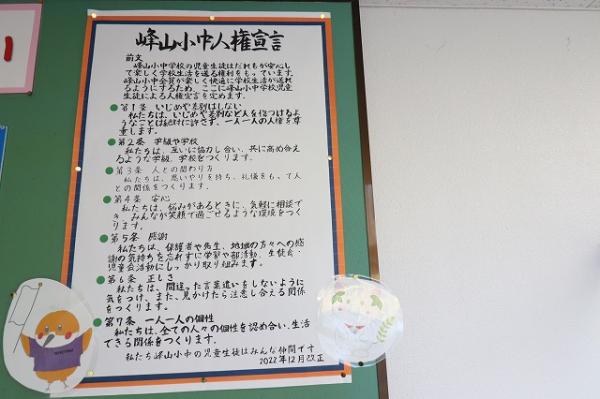 い
峰山小中人権宣言
前文
峰山小中学校の児童生徒はだれもが安心し
て楽しく学校生活を送る権利をもっています。
峰山小中全員が楽しく快適に学校生活が送れ
るようにするため、ここに峰山小中学校児童
生徒による人権宣言を定めます。
第1条 いじめや差別はしない
私たちは、いじめや差別など人を傷つけるよ
うなことは絶対に許さず、一人一人の人権を尊
重します。
第2条 学級や学校
私たちは、互いに協力し合い、共に高め合え
るような学級、学校をつくります。
第3条 人との関わり方
私たちは、思いやりを持ち、礼儀をもって人
との関係をつくります。
第4条 安心
私たちは、悩みがあるときに、気軽に相談で
き、みんなが笑顔で過ごせるような環境をつく
ります。
第5条 感謝
私たちは、保護者や先生、地域の方々への感
謝の気持ちを忘れずに学習や部活動、生徒会・
児童会活動にしっかり取り組みます。
第6条 正しさ
私たちは、間違った言葉遣いをしないように
気をつけ、また、見かけたら注意し合える関係
をつくります。
第7条 一人一人の個性
私たちは、全ての人々の個性を認め合い、生活
できる関係をつくります。
私たち峰山小中の児童生徒はみんな仲間です
2022年12月改正